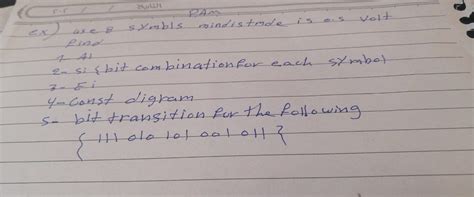 PAM
ex) use 8 symbls mindistnde is 0.5 volt
find
1- Ai
2- si & bit combination for each symbol
3- Ei
4- Const digram
5- bit transition for the following
{ 111 010 101 001 011 }